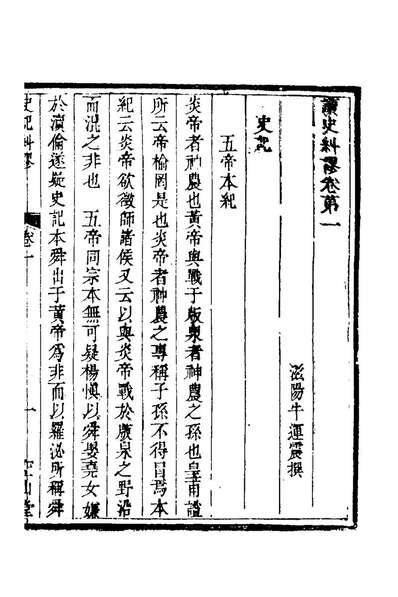 讀史糾謬卷第一
滋陽牛運震撰
史記
五帝本紀
炎帝者神農也黃帝與戰于版泉者神農之孫也皇甫謐
所云帝榆罔是也炎帝者神農之專稱子孫不得冒焉本
紀云炎帝欲徵師諸侯又云以與炎帝戰於阪泉之野沿
而混之非也　五帝同宗本無可疑楊慎以舜娶堯女嫌
於瀆倫遂疑史記本舜出于黃帝為非而以羅泌所稱舜
史記糾謬　卷一　一　空山堂